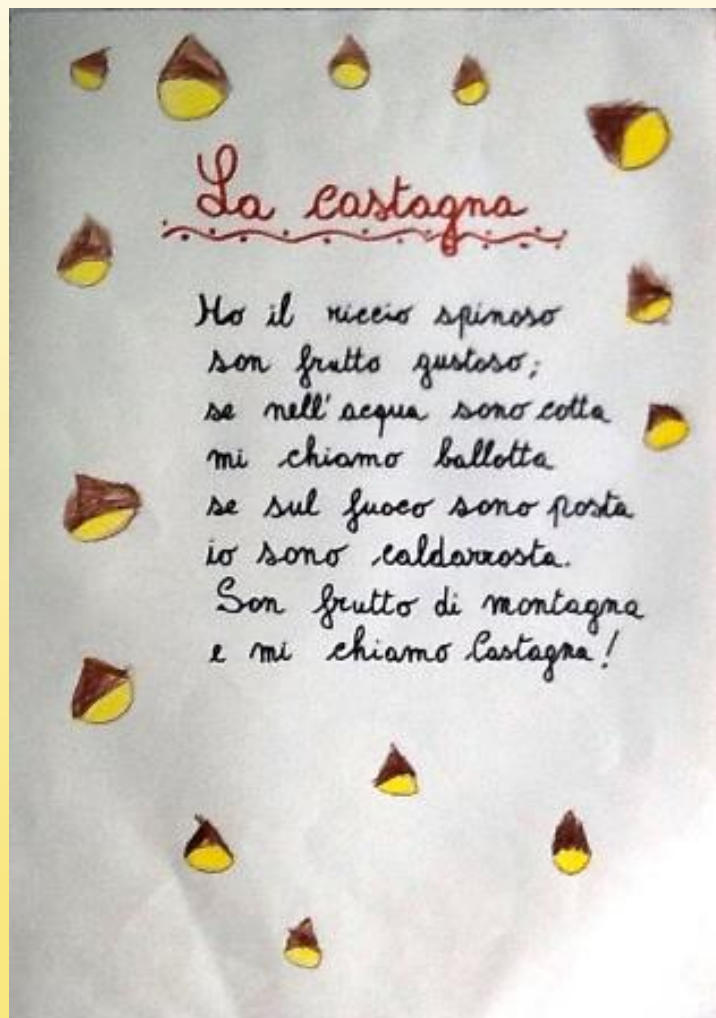 La castagna
Ho il riccio spinoso
son frutto gustoso;
se nell'acqua sono cotta
mi chiamo ballotta
se sul fuoco sono posta
io sono caldarrosta.
Son frutto di montagna
e mi chiamo Castagna!